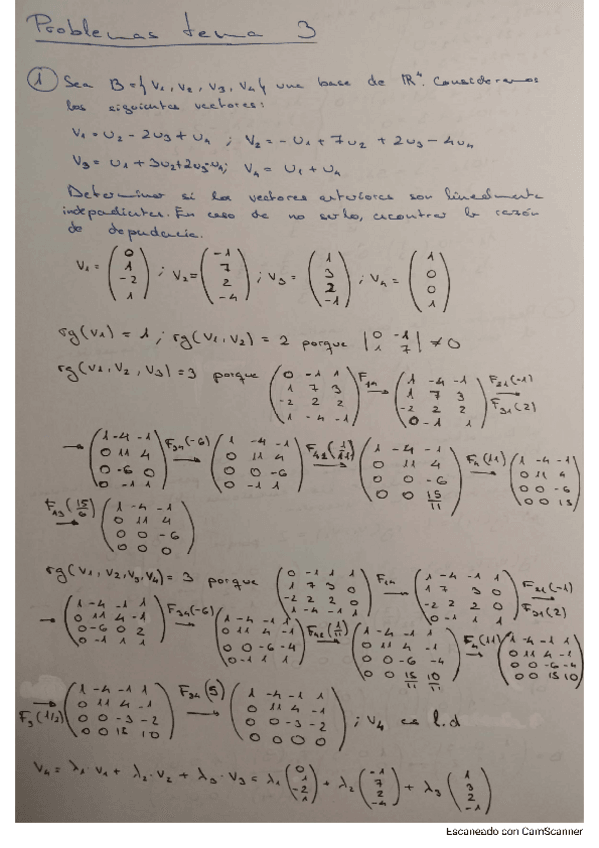 Problemas tema 3
1 Sea B={v1, v2, v3, v4} una base de R⁴. Consideramos
los siguientes vectores:
v1 = u2 - 2u3 + u4 ; v2 = -u1 + 7u2 + 2u3 - 4u4
v3 = u1 + 3u2 + 2u3 - u4; v4 = u1 + u4
Determinar si los vectores anteriores son linealmente
independientes. En caso de no serlo, encontrar la razón
de dependencia.
v1 = (0 1 -2 1) ; v2 = (-1 7 2 -4) ; v3 = (1 3 2 -1) ; v4 = (1 0 0 1)
rg(v1) = 1 ; rg(v1, v2) = 2 porque |0 -1 1 7| ≠ 0
rg(v1, v2, v3) = 3 porque (0 -1 1 1 7 3 -2 2 2 1 -4 -1) F14 → (1 -4 -1 1 7 3 -2 2 2 0 -1 1) F21(-1) F31(2) →
→ (1 -4 -1 0 11 4 0 -6 0 0 -1 1) F34(-6) → (1 -4 -1 0 11 4 0 0 -6 0 -1 1) F42(1/11) → (1 -4 -1 0 11 4 0 0 -6 0 0 15/11) F4(11) → (1 -4 -1 0 11 4 0 0 -6 0 0 15)
→ (1 -4 -1 0 11 4 0 0 -6 0 0 0)
rg(v1, v2, v3, v4) = 3 porque (0 -1 1 1 1 7 3 0 -2 2 2 0 1 -4 -1 1) F14 → (1 -4 -1 1 1 7 3 0 -2 2 2 0 0 -1 1 1) F21(-1) F31(2) →
→ (1 -4 -1 1 0 11 4 -1 0 -6 0 2 0 -1 1 1) F34(-6) → (1 -4 -1 1 0 11 4 -1 0 0 -6 -4 0 -1 1 1) F42(1/11) → (1 -4 -1 1 0 11 4 -1 0 0 -6 -4 0 0 15/11 10/11) F4(11) → (1 -4 -1 1 0 11 4 -1 0 0 -6 -4 0 0 15 10)
→ F3(1/2) (1 -4 -1 1 0 11 4 -1 0 0 -3 -2 0 0 15 10) F34(5) → (1 -4 -1 1 0 11 4 -1 0 0 -3 -2 0 0 0 0) ; v4 es l.d
v4 = λ1·v1 + λ2·v2 + λ3·v3 = λ1 (0 1 -2 1) + λ2 (-1 7 2 -4) + λ3 (1 3 2 -1)
Escaneado con CamScanner